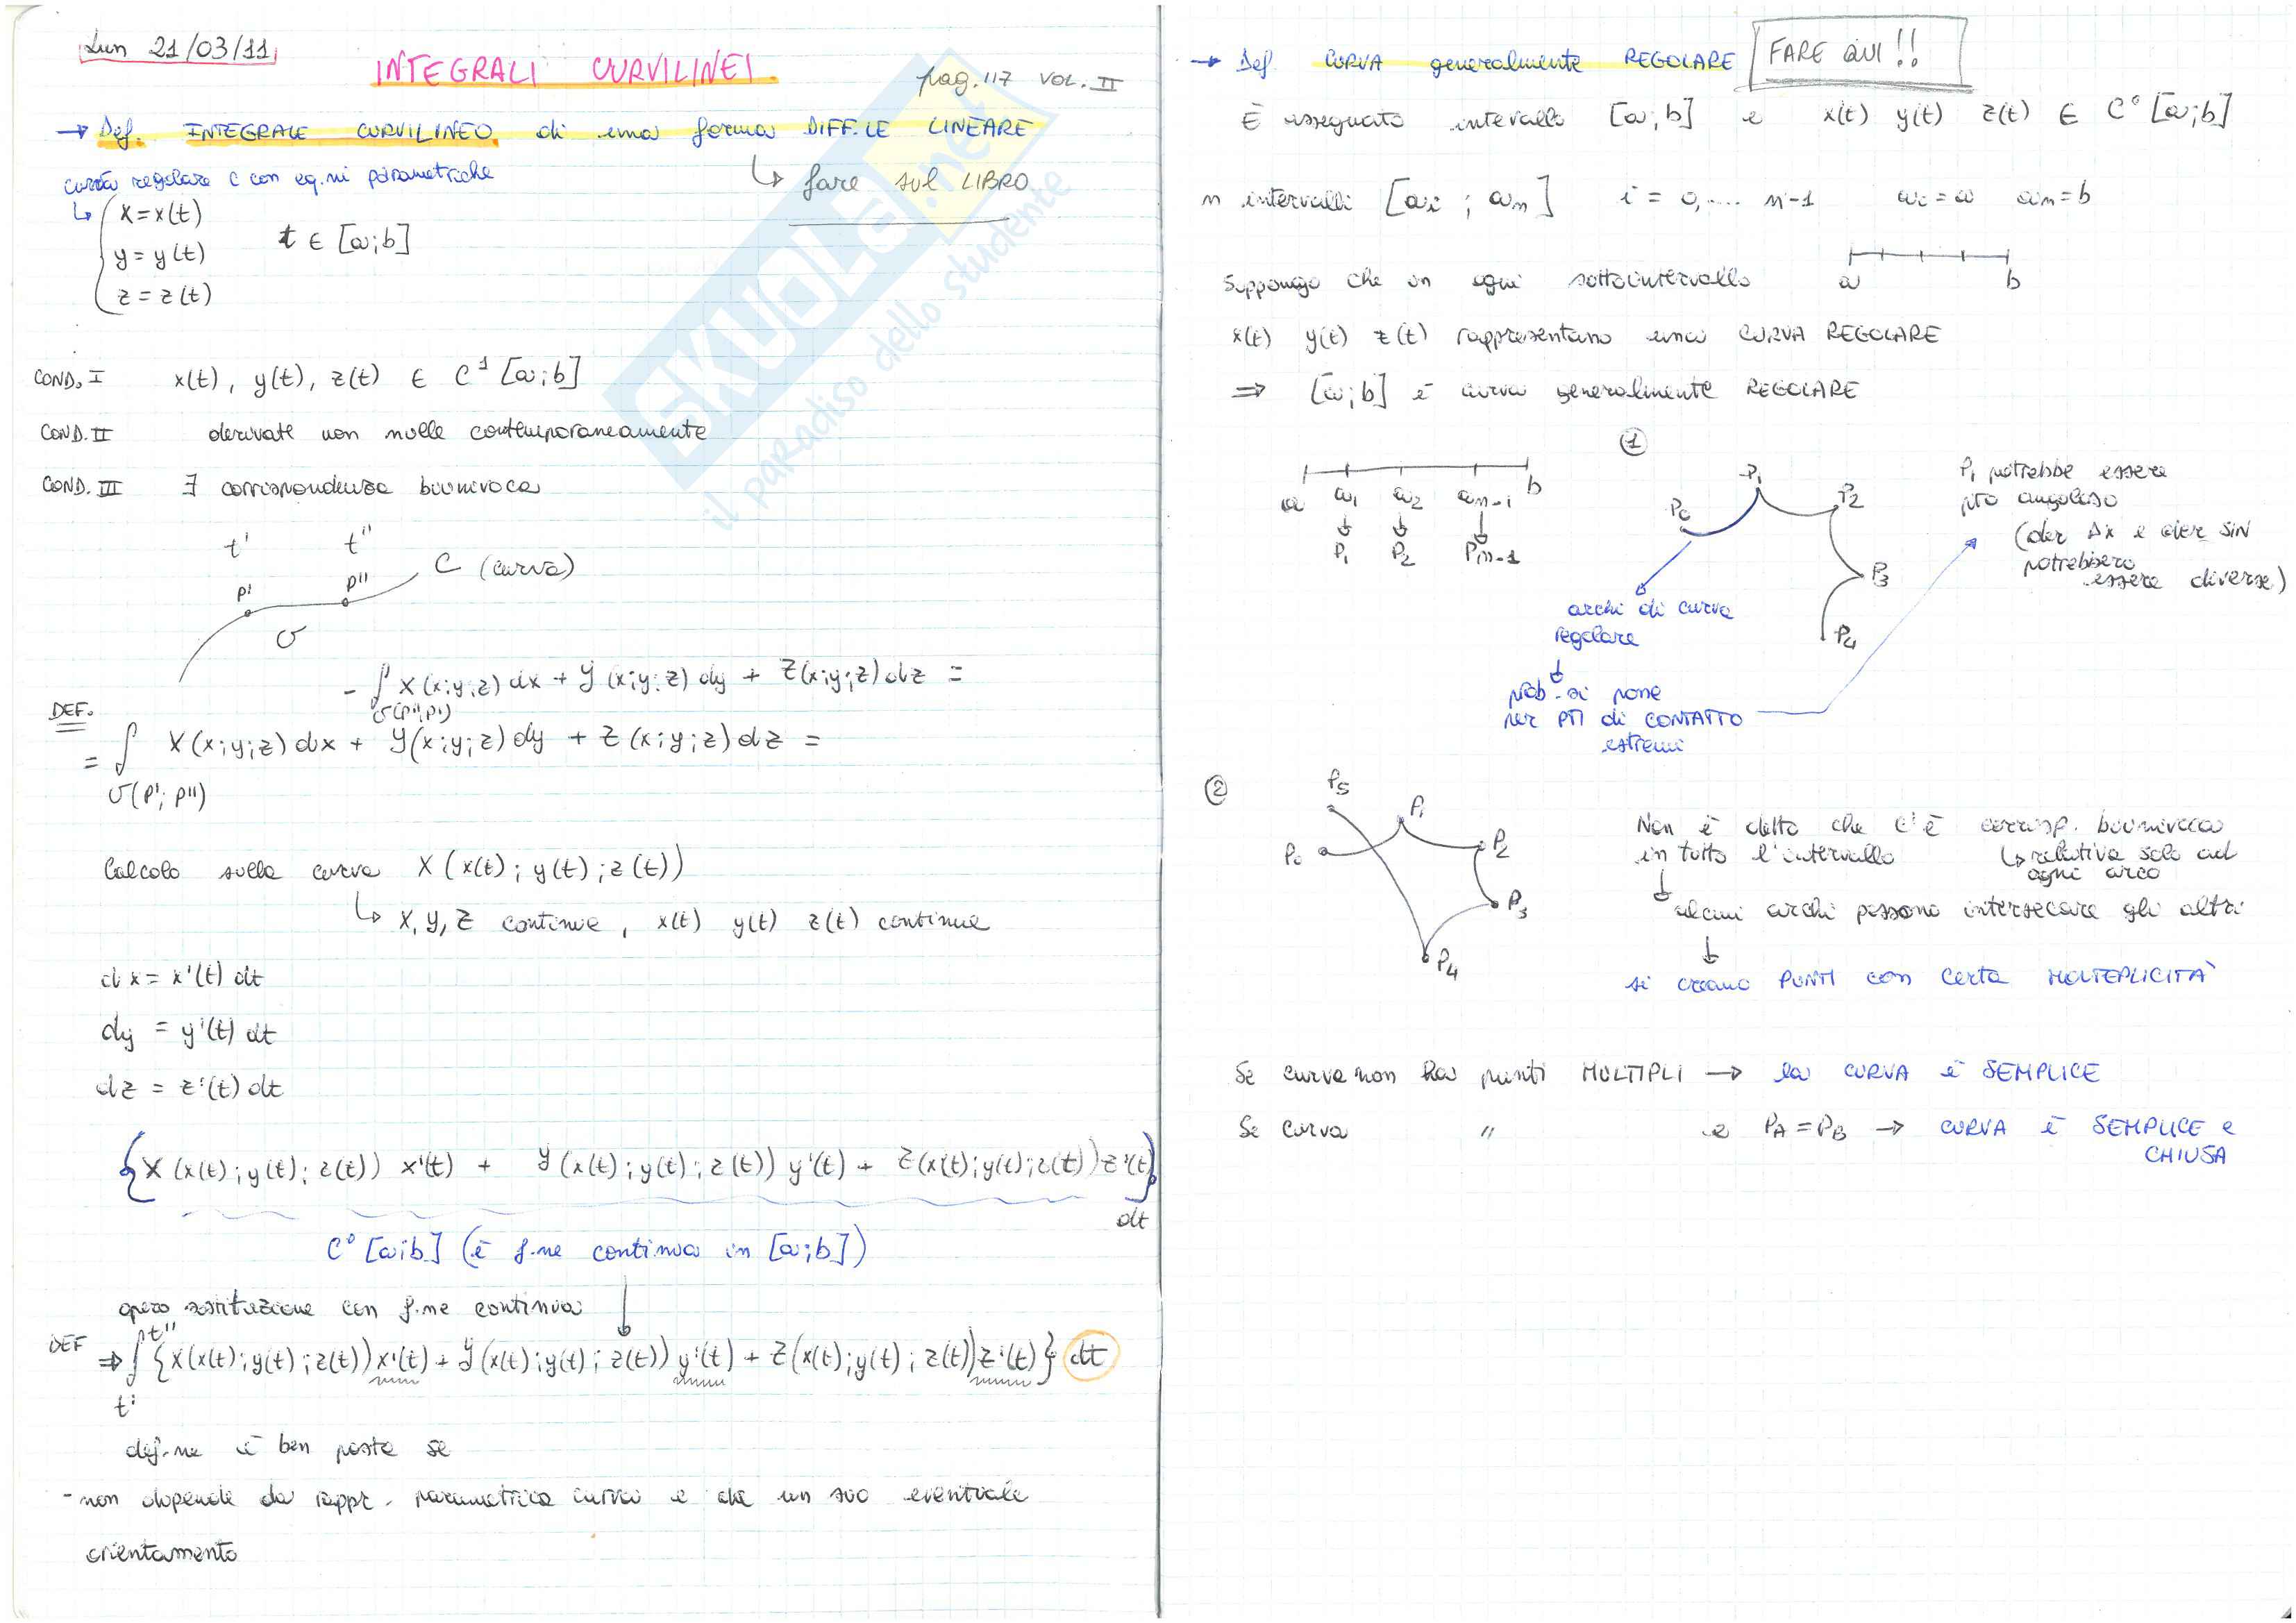 Lun 21/03/11
INTEGRALI CURVILINEI
pag. 117 VOL. II
→ Def. INTEGRALE CURVILINEO di una forma DIFF.LE LINEARE
↳ fare sul LIBRO
curva regolare C con eq.ni parametriche
↳ { x = x(t)
y = y(t)
z = z(t)
t ∈ [a;b]
COND. I x(t), y(t), z(t) ∈ C¹ [a;b]
COND. II derivate non nulle contemporaneamente
COND. III ∃ corrispondenza biunivoca
t' t''
P' P'' C (curva)
σ
- ∫ X(x;y;z) dx + Y(x;y;z) dy + Z(x;y;z) dz =
σ(P'';P')
DEF.
= ∫ X(x;y;z) dx + Y(x;y;z) dy + Z(x;y;z) dz =
σ(P'; P'')
Calcolo sulla curva X(x(t); y(t); z(t))
↳ X, Y, Z continue, x(t) y(t) z(t) continue
dx = x'(t) dt
dy = y'(t) dt
dz = z'(t) dt
{X(x(t); y(t); z(t)) x'(t) + Y(x(t); y(t); z(t)) y'(t) + Z(x(t); y(t); z(t)) z'(t)}
dt
C° [a;b] (è f.ne continua in [a;b])
opero sostituzione con f.ne continua
t''
DEF ⇒ ∫ {X(x(t); y(t); z(t)) x'(t) + Y(x(t); y(t); z(t)) y'(t) + Z(x(t); y(t); z(t)) z'(t)} dt
t'
def.ne è ben posta se
- non dipende da rappr. parametrica curva e da un suo eventuale
orientamento
→ Def. CURVA generalmente REGOLARE FARE QUI!!
È assegnato intervallo [a;b] e x(t) y(t) z(t) ∈ C° [a;b]
n intervalli [ai ; an] i = 0,.... n-1 a₀ = a an = b
Suppongo che in ogni sottointervallo
a b
x(t) y(t) z(t) rappresentano una CURVA REGOLARE
⇒ [a;b] è curva generalmente REGOLARE
a a₁ a₂ an-1 b
↓ ↓ ↓
P₁ P₂ Pn-1
①
P₀ P₁ P₂ P₃ P₄
P₁ potrebbe essere
pto angoloso
(der Dx e der SIN
potrebbero
essere diverse)
archi di curva
regolare
↓
prob. si pone
per PTI di CONTATTO
estremi
②
P₅
P₀ P₁ P₂
P₃
P₄
Non è detto che c'è corrisp. biunivoca
in tutto l'intervallo ↳ relativa solo ad
ogni arco
↓
alcuni archi possono intersecare gli altri
↓
si creano PUNTI con certa MOLTEPLICITÀ
Se curva non ha punti MULTIPLI → la CURVA è SEMPLICE
Se curva " e PA = PB → CURVA è SEMPLICE e
CHIUSA
SKUOLA.net
il paradiso dello studente